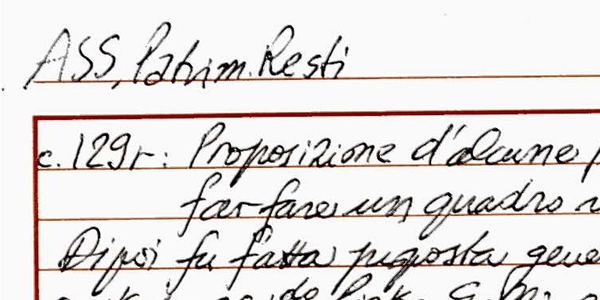 ASS, Patrim. Resti
c. 129r: Proposizione d'alcune
far fare un quadro
Dipoi fu fatta proposta gene